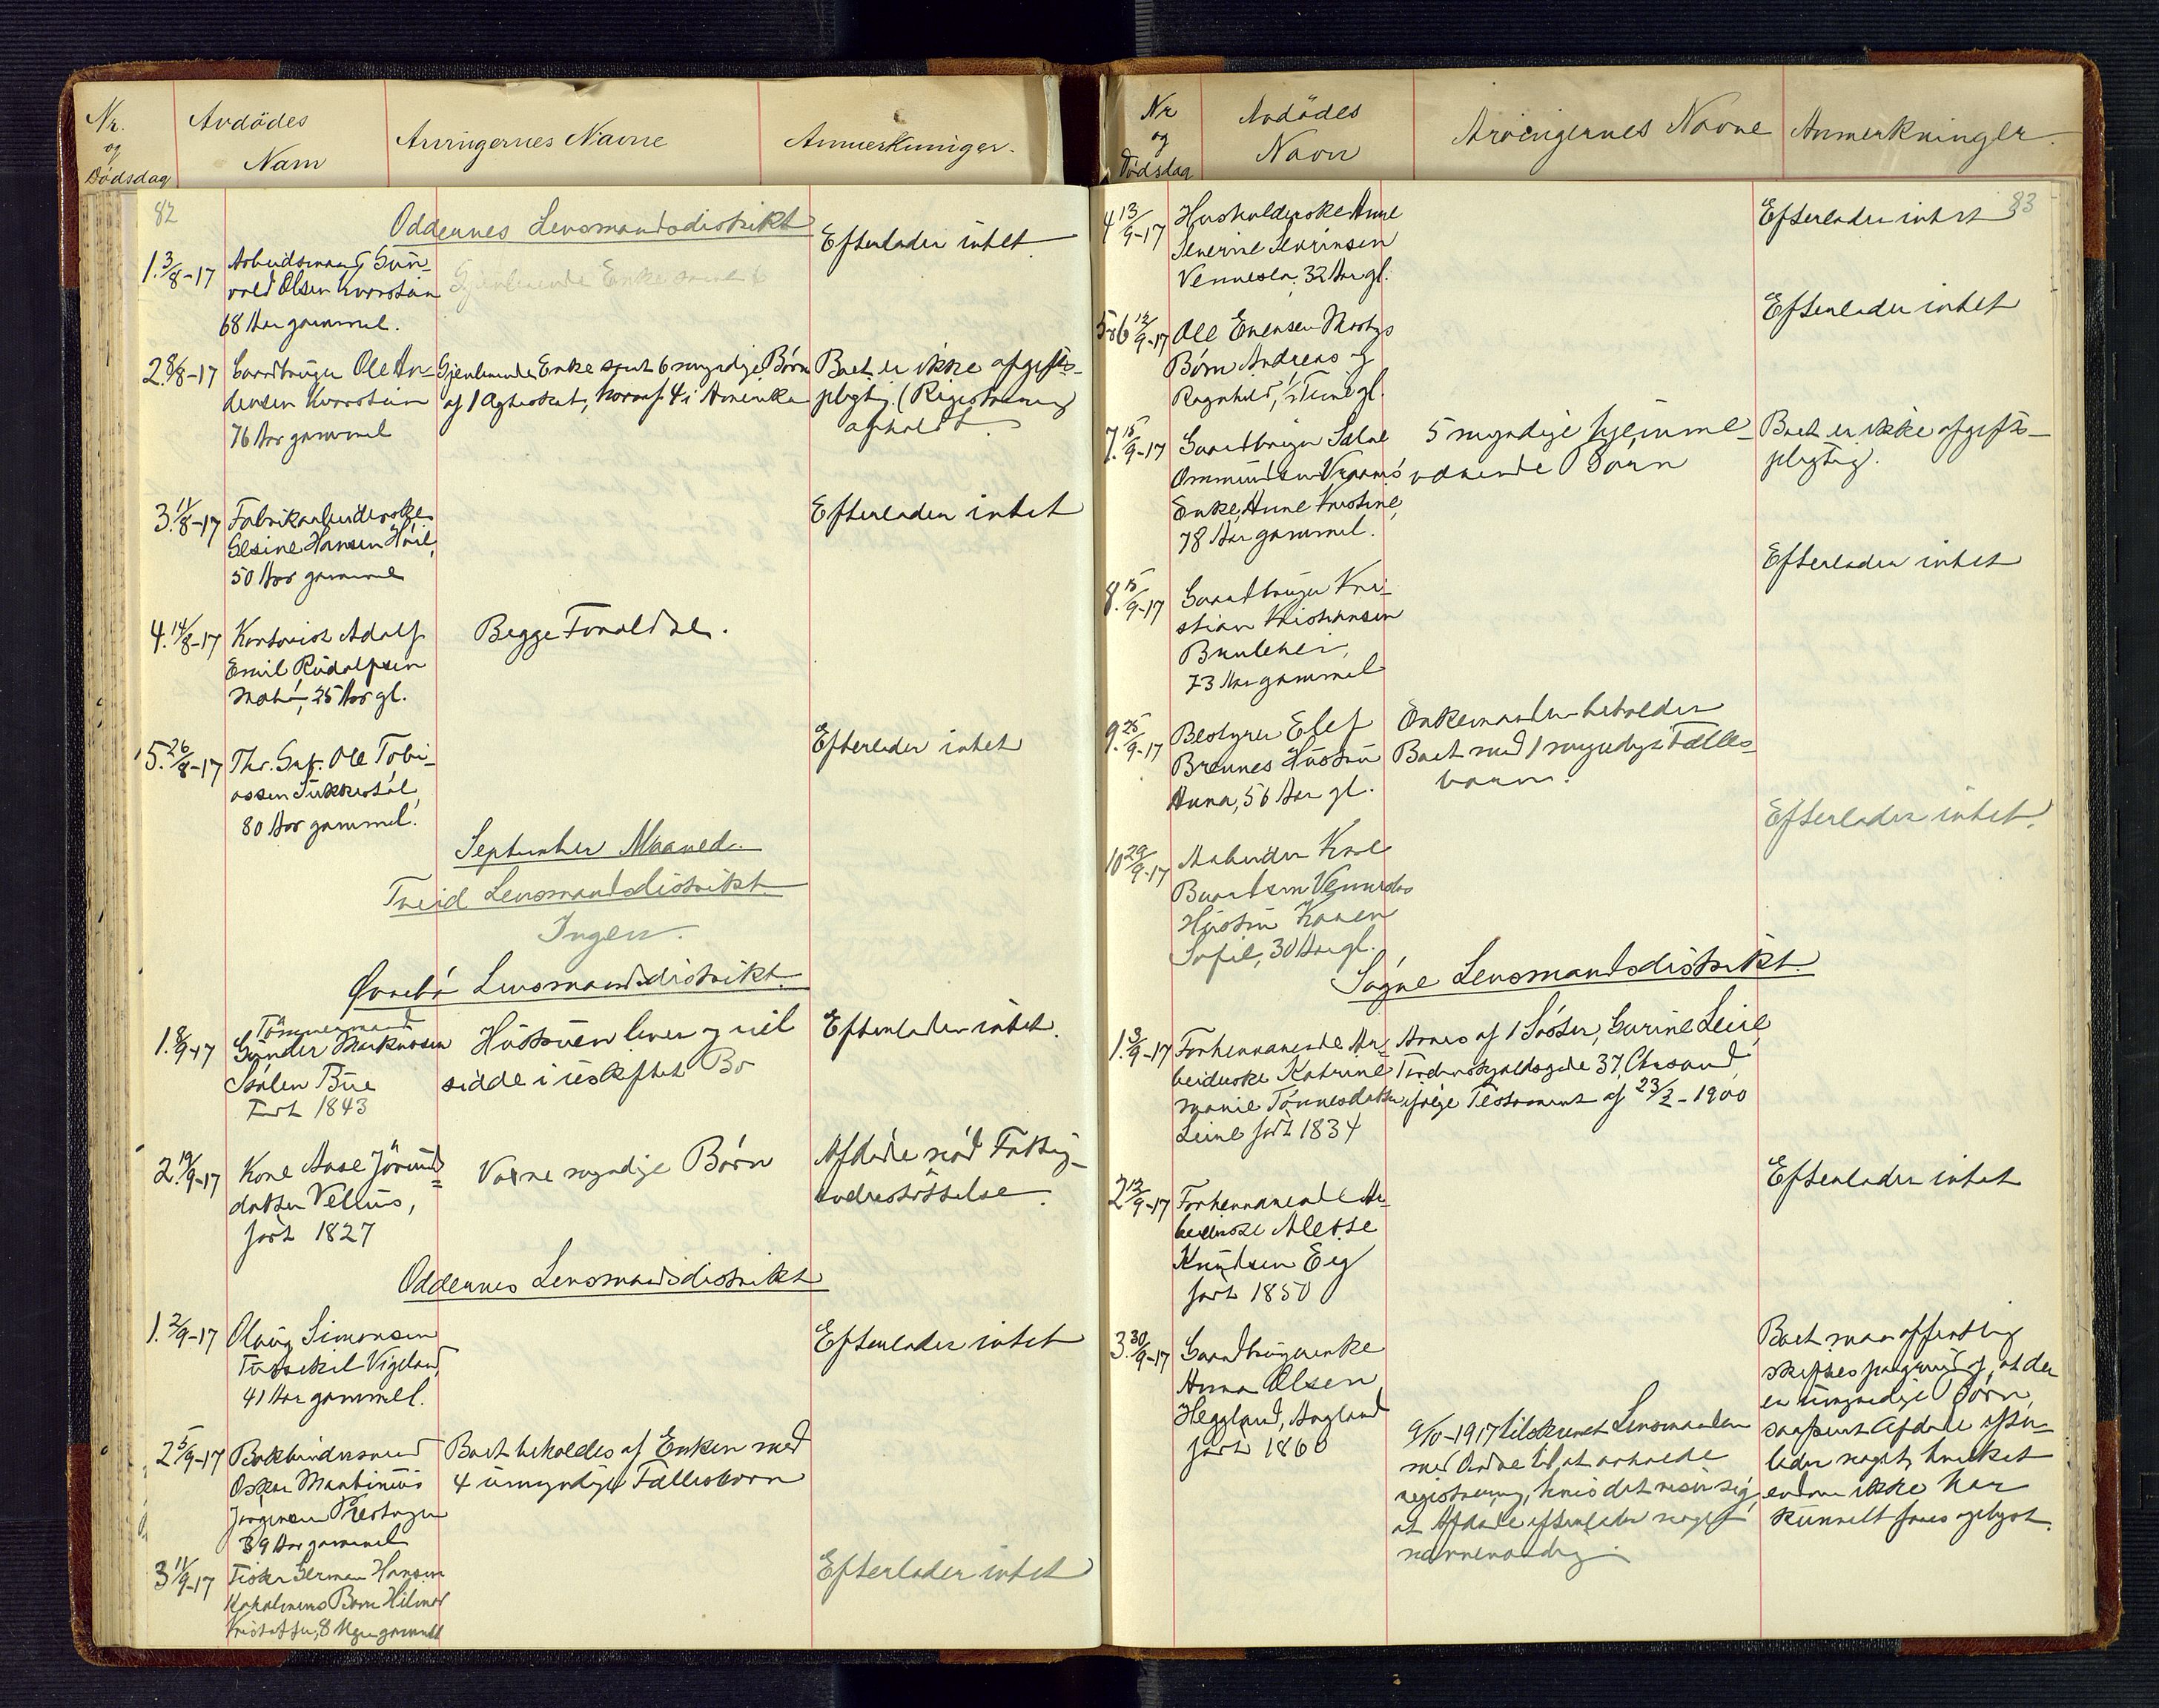 Nr. og Dødsdag
Avdödes Navn
Arvingernes Navne
Anmerkninger.
82
Oddernes Lensmandsdistrikt
1. 3/8-17
Arbeidsmand Gun-
vald Olsen Kvarstein
68 Aar gammel.
Gjenlevende Enke samt 6
Efterlader intet
2. 8/8-17
Gaardbruger Ole An-
densen Kvarstein
76 Aar gammel
Gjenlevende Enke samt 6 myndige Børn
af 1 Ægteskab, hvoraf 4 i Amerika
Boet er ikke afgifts-
pligtig. (Registrering
afholdt.
3. 11/8-17
Fabrikarbeiderske
Gesine Hansen
50 Aar gammel
Efterlader intet
4. 14/8-17
Kontorist Adolf
Emil Rudolfsen
25 Aar gl.
Begge Forældre.
5. 26/8-17
Ole Tobi-
assen Sukkestøl,
80 Aar gammel.
Efterlader intet
September Maaned.
Tveid Lensmandsdistrikt
Ingen.
Øvrebø Lensmandsdistrikt.
1. 8/9-17
Tømmermand
Gunder Markussen
Stølen Bue
Født 1843
Hustruen lever og vil
sidde i uskiftet Bo
Efterlader intet.
2. 19/9-17
Kone Aase Jørund-
datter Vehus,
født 1827
Voxne myndige Børn
Afdøde nød Fattig-
understøttelse.
Oddernes Lensmandsdistrikt
1. 2/9-17
Olaug Simonsen
Vigeland,
41 Aar gammel.
Efterlader intet
2 5/9-17
Bokbindersvend
Oskar Martinius
Jørgensen
39 Aar gammel
Boet beholdes af Enken med
4 umyndige Fællesbørn
3 11/9-17
Fisker Herman Hansen
Kaholmens Barn Hilmar
Kristoffer, 8 Mgr gammelt
Efterlader intet
Nr og Dødsdag
Avdödes Navn
Arvingernes Navne
Anmerkninger.
83
4 13/9-17
Husholderske Anne
Severine Severinsen
Vennesla, 32 Aar gl.
Efterlader intet
5 og 6 12/9-17
Ole Evensen
Børn Andreas og
Ragnhild, 1/2 Time gl.
Efterlader intet
7. 15/9-17
Gaardbruger Salve
Ommundsen
Enke, Anne Kristine,
78 Aar gammel.
5 myndige hjemme-
værende Børn
Boet er ikke afgifts-
pligtig.
8. 15/9-17
Gaardbruger Kri-
stian Kristiansen
73 Aar gammel
Efterlader intet
9. 25/9-17
Bestyrer Elef
Brennes Hustru
Anna, 56 Aar gl.
Enkemanden beholder
Boet med 1 myndig Fælles-
barn.
10 29/9-17
Arbeider Karl
Hustru Karen
Sofie, 30 Aar gl.
Efterlader intet.
Søgne Lensmandsdistrikt.
1. 3/9-17
Forhenværende Ar-
beiderske Katrine
Marie Tønnesdatter
Leire født 1834
Arves af 1 Søster, Gurine Leire,
Tordenskjoldsgade 37, Chrsand,
ifølge Testament af 23/2-1900
2 12/9-17
Forhenværende Ar-
beiderske Aletse
Knudsen Eig
født 1850
Efterlader intet
3. 30/9-17
Gaardbrugerenke
Anna Olsen
Heggland, Øygland
født 1860
9/10-1917 tilskrevet Lensmanden
med Ordre til at avholde
registrering, hvis det viser sig,
at Afdøde efterlader noget
nævneværdig.
Boet maa offentlig
skiftes paagrund af, at der
er umyndige Børn,
saafremt Afdøde efter-
lader noget, hvilket
endnu ikke har
kunnet faaes oplyst.